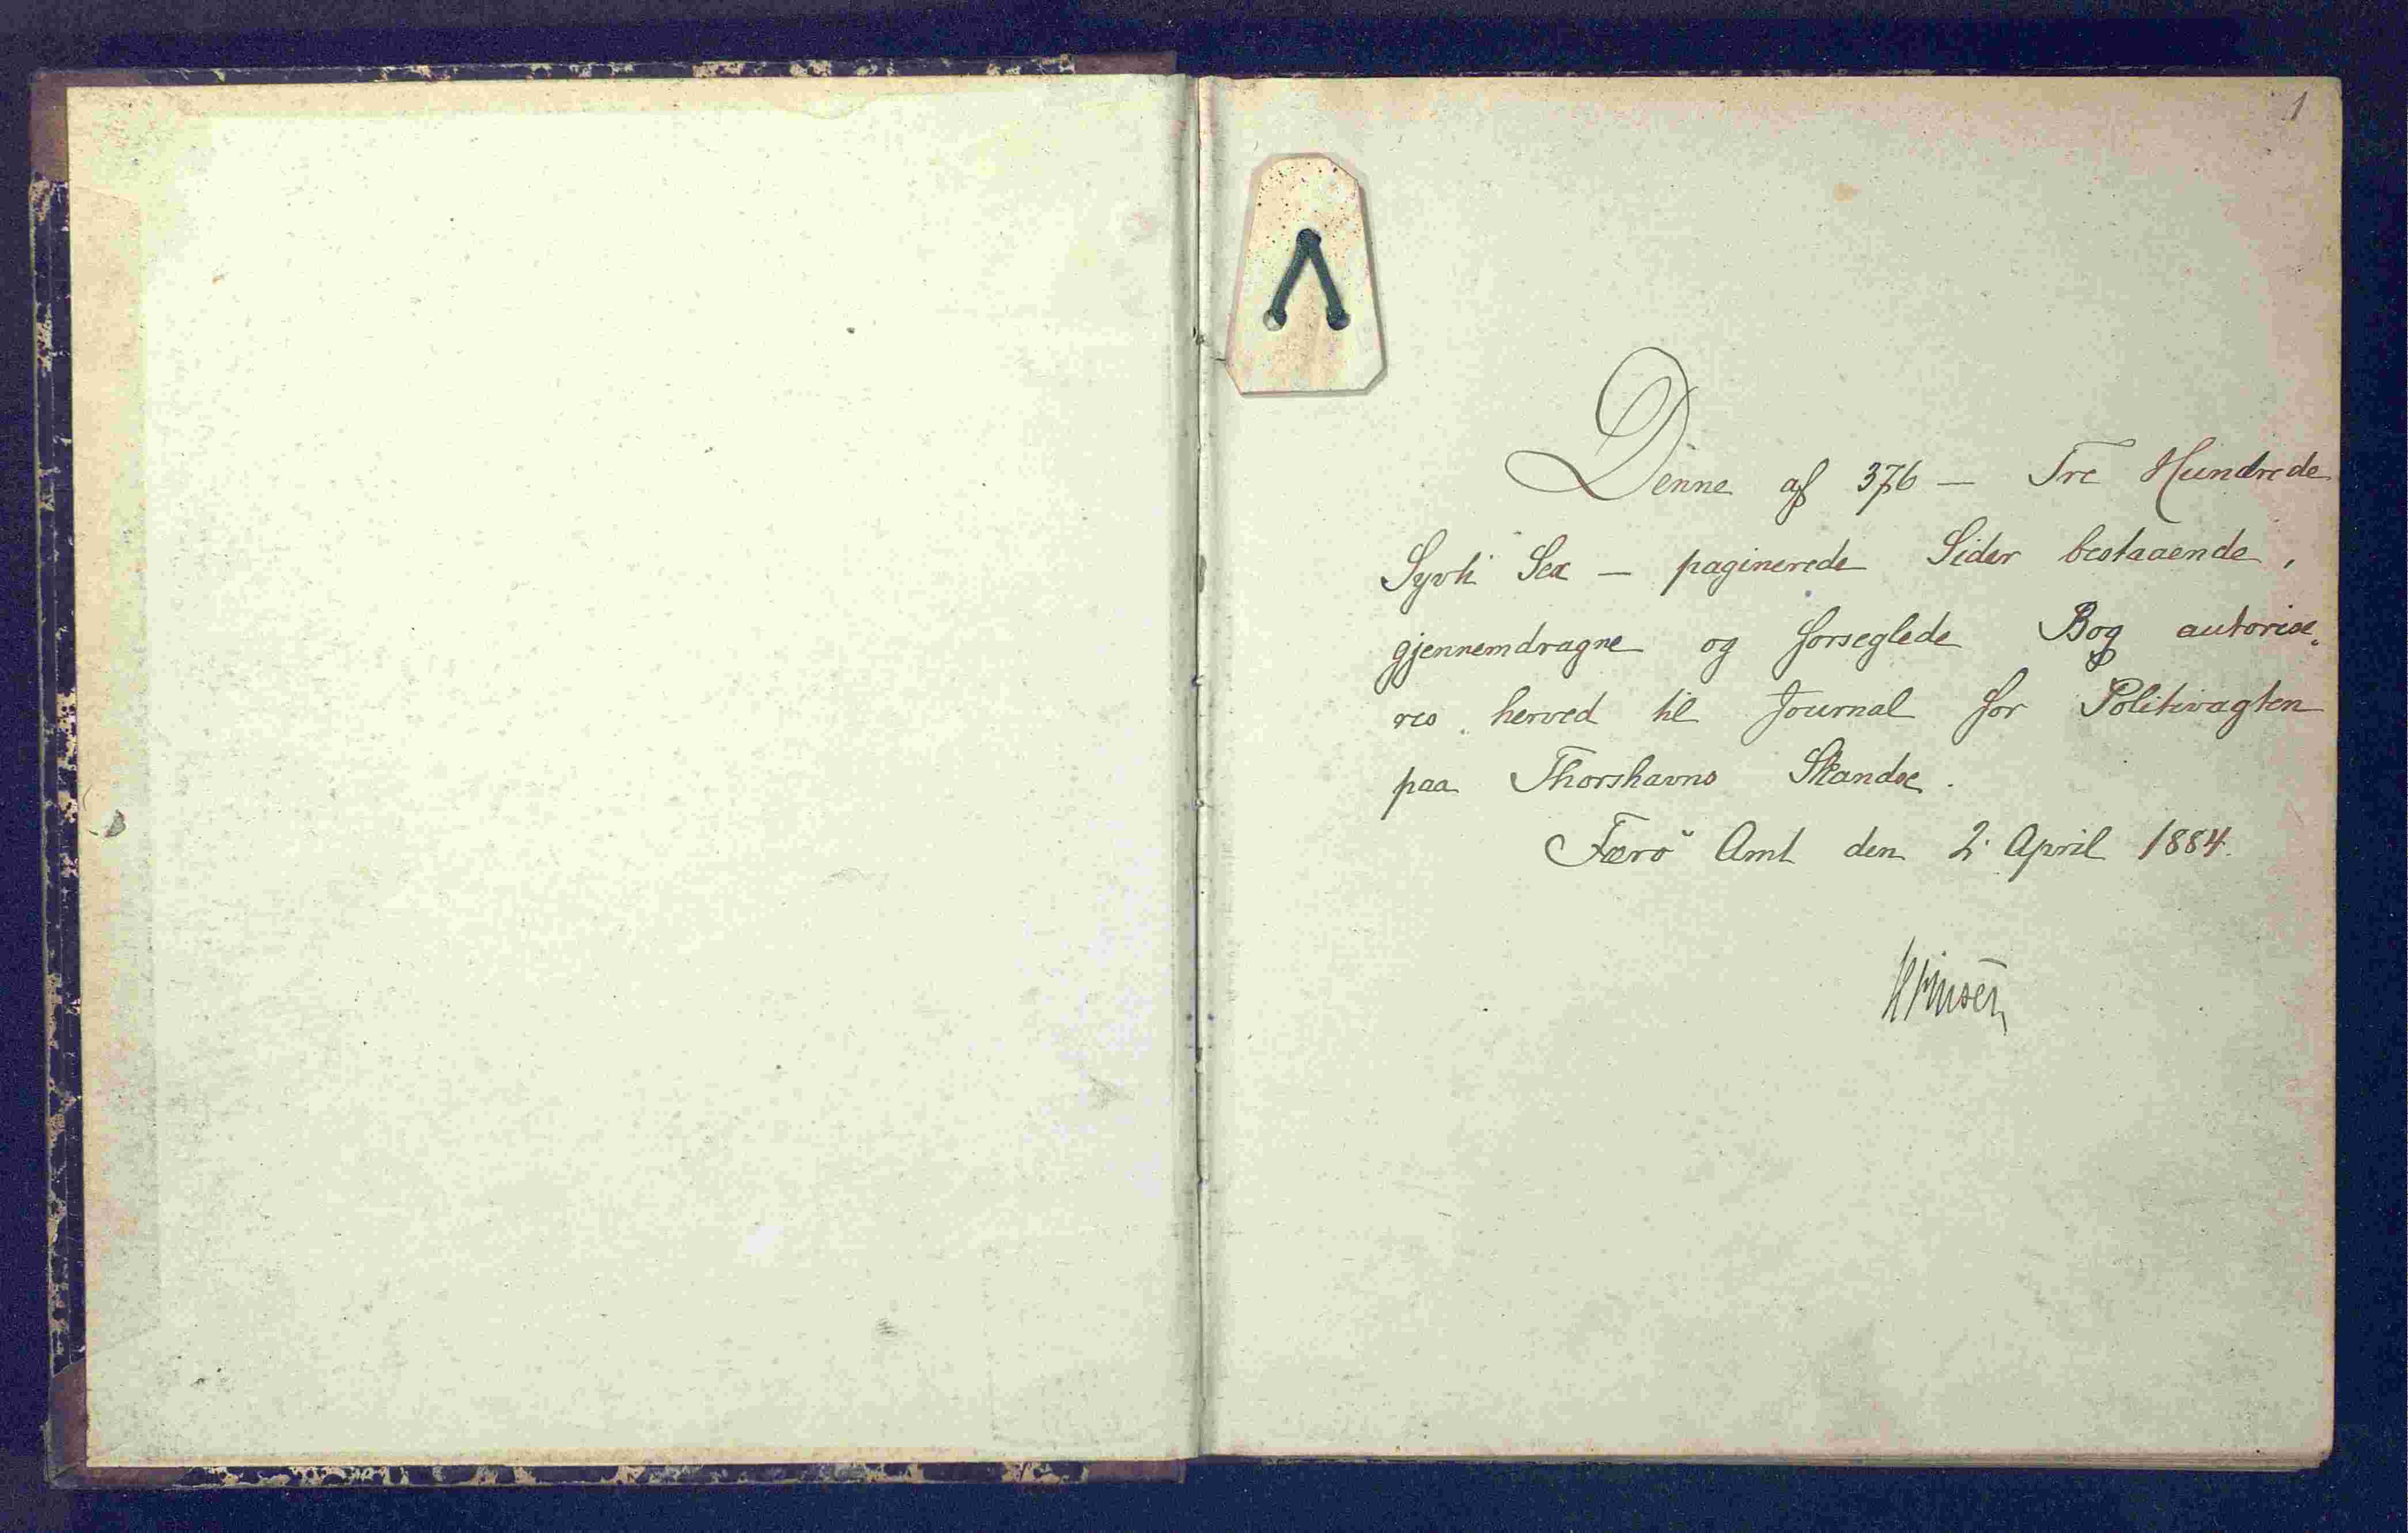 1
Denne af 376 — Tre Hundrede
Syvti Sex — paginerede Sider bestaaende,
gjennemdragne og forseglede Bog autorise„
res herved til Journal for Politivagten
paa Thorshavns Skandse.
Færö Amt den 2' April 1884.
HFinsen